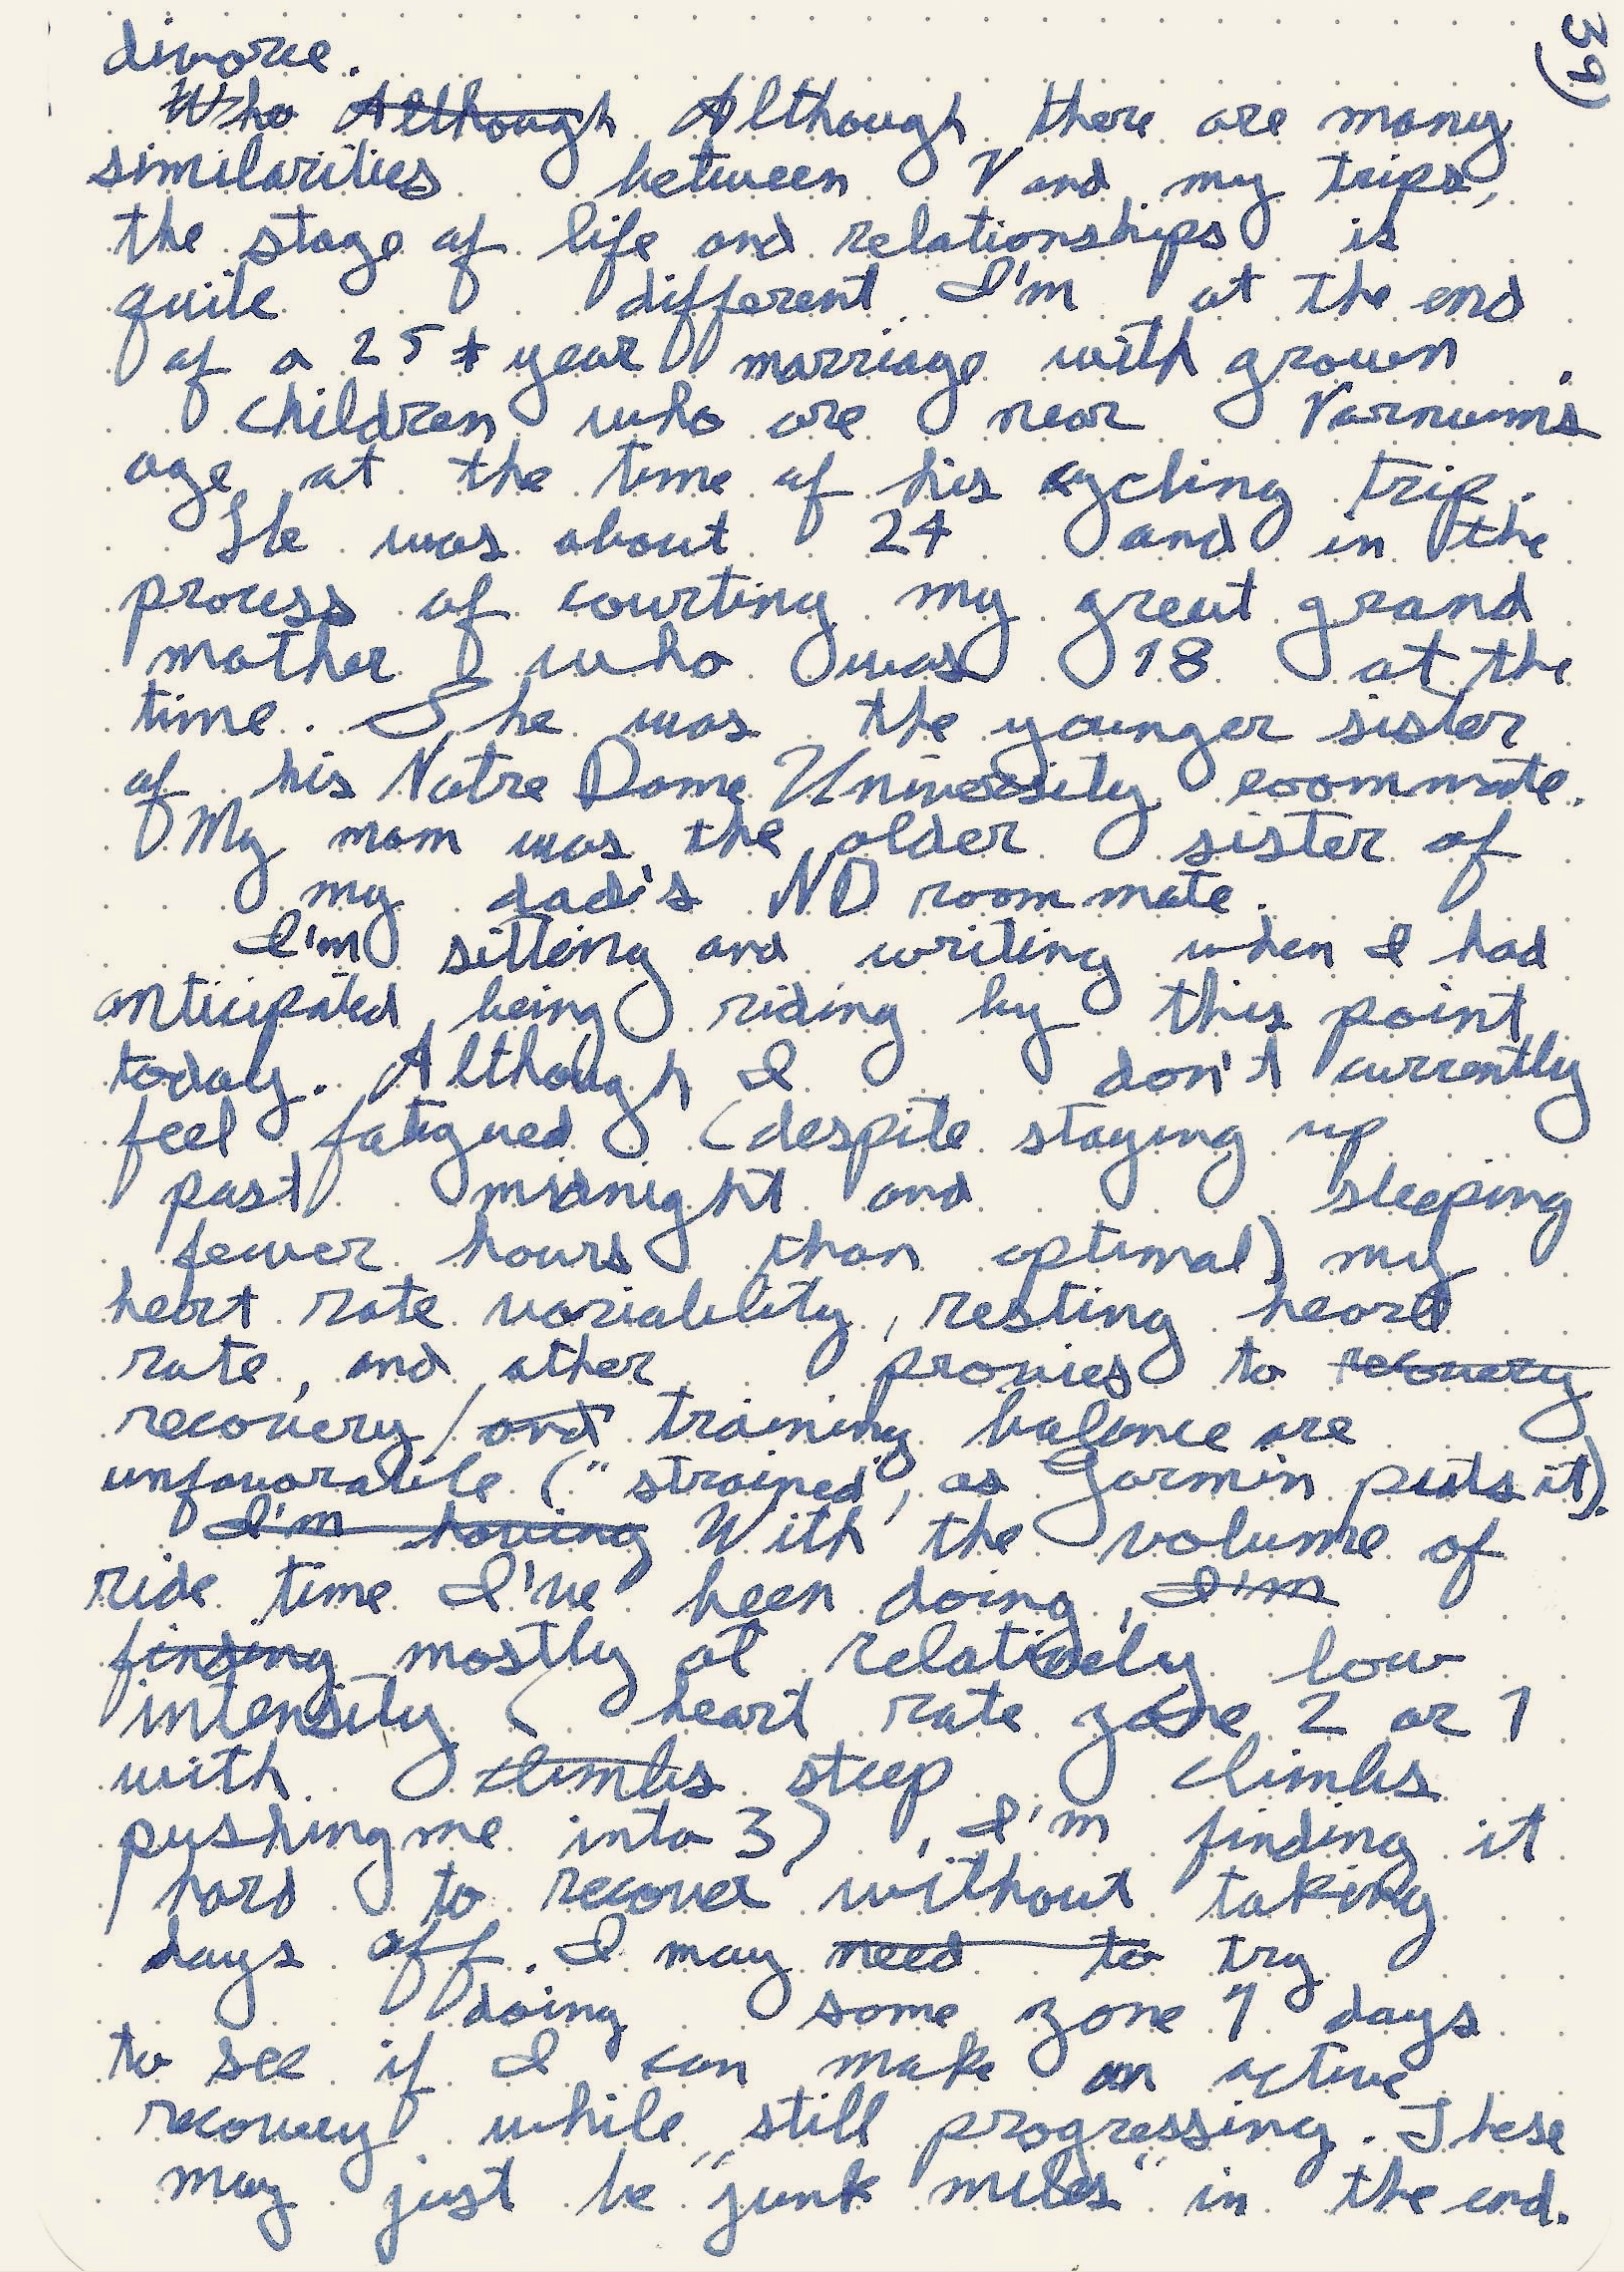 39)
divorce.
Who Although Although there are many
similarities between V and my trips,
the stage of life and relationships is
quite different. I'm at the end
of a 25+ year marriage with grown
children who are near Varnums
age at the time of his cycling trip.
He was about 24 and in the
process of courting my great grand
mother who was 18 at the
time. She was the younger sister
of his Notre Dame University roommate.
My mom was the older sister of
my dad's ND roommate.
I'm sitting and writing when I had
anticipated being riding by this point
today. Although I don't currently
feel fatigued (despite staying up
past midnight and sleeping
fewer hours than optimal) my
heart rate variability, resting heart
rate, and other proxies to recovery
recovery / and training balance are
unfavorable ("strained", as Garmin puts it).
I'm having With the volume of
ride time I've been doing, I'm
finding mostly at relatively low
intensity ( heart rate zone 2 or 1
with climbs steep climbs
pushing me into 3) , I'm finding it
hard to recover without taking
days off. I may need to try
doing some zone 1 days
to see if I can make an active
recovery while still progressing. These
may just be "junk miles" in the end.